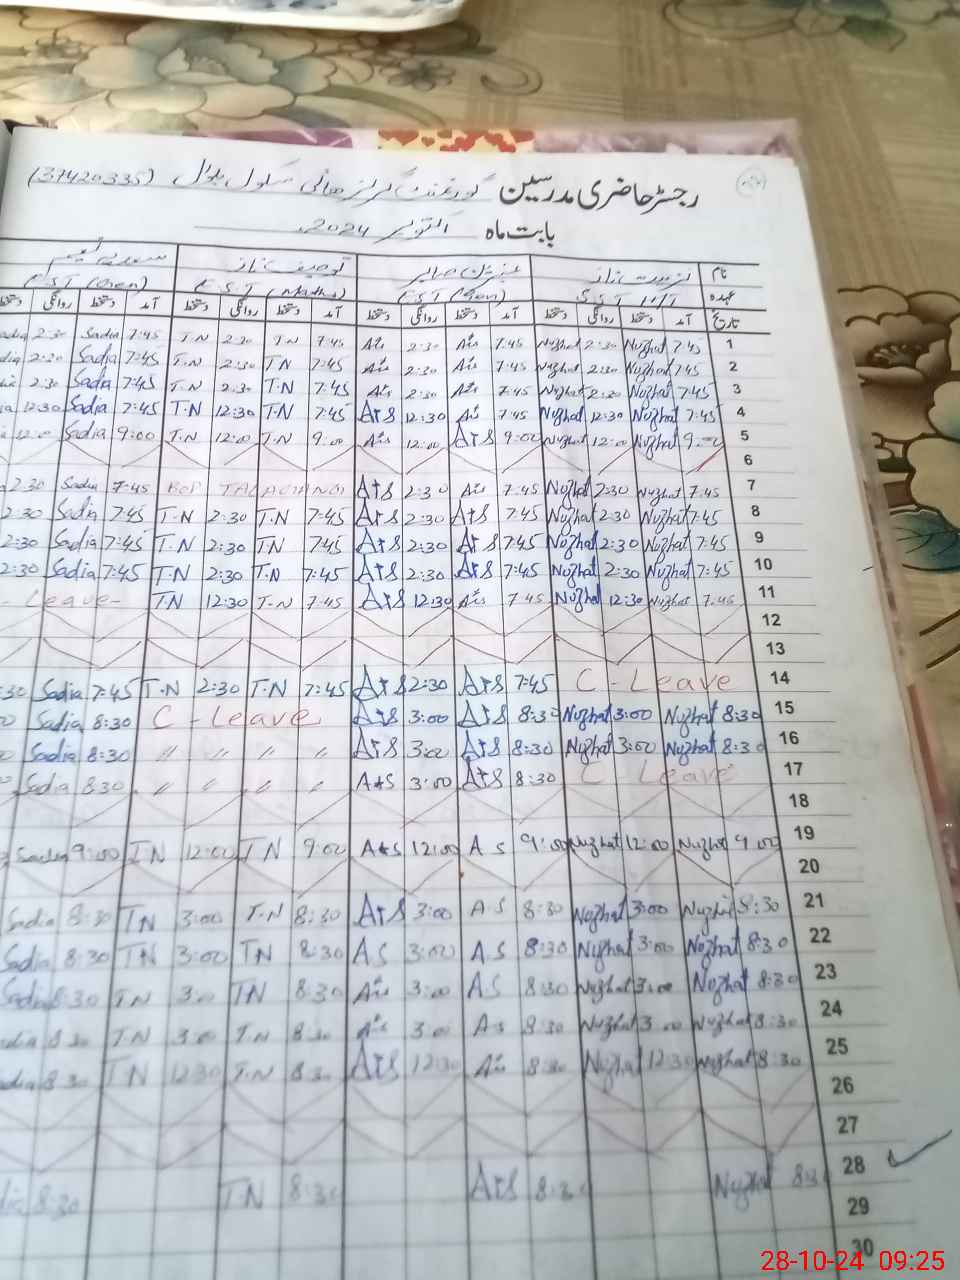 رجسٹر حاضری مدرسین گورنمنٹ گرلز ہائی سکول (37420335)
بابت ماہ اکتوبر 2024ء
نام
عہدہ EST (Maths) EST (Gen)
تاریخ آمد دستخط روانگی دستخط آمد دستخط روانگی دستخط آمد دستخط روانگی دستخط آمد دستخط روانگی
1 7:45 Nuzhat 2:30 Nuzhat 7:45 2:30 7:45 T.N 2:30 T.N 7:45 Sadia 2:30
2 7:45 Nuzhat 2:30 Nuzhat 7:45 2:30 7:45 TN 2:30 T.N 7:45 Sadia 2:30
3 7:45 Nuzhat 2:30 Nuzhat 7:45 2:30 7:45 TN 2:30 T.N 7:45 Sadia 2:30
4 7:45 Nuzhat 12:30 Nuzhat 7:45 12:30 A*S 7:45 T.N 12:30 T.N 7:45 Sadia 12:30
5 9:00 Nuzhat 12:00 Nuzhat 9:00 A*S 12:00 9:00 T.N 12:00 T.N 9:00 Sadia 12:00
6
7 7:45 Nuzhat 2:30 Nuzhat 7:45 2:30 A*S 7:45 Sadia 2:30
8 7:45 Nuzhat 2:30 Nuzhat 7:45 A*S 2:30 A*S 7:45 T.N 2:30 T.N 7:45 Sadia 2:30
9 7:45 Nuzhat 2:30 Nuzhat 7:45 A*S 2:30 A*S 7:45 T.N 2:30 T.N 7:45 Sadia 2:30
10 7:45 Nuzhat 2:30 Nuzhat 7:45 A*S 2:30 A*S 7:45 T.N 2:30 T.N 7:45 Sadia 2:30
11 7:45 Nuzhat 12:30 Nuzhat 7:45 12:30 A*S 7:45 T.N 12:30 T.N - Leave -
12
13
14 C - Leave 7:45 A*S 2:30 A*S 7:45 T.N 2:30 T.N 7:45 Sadia :30
15 8:30 Nuzhat 3:00 Nuzhat 8:30 A*S 3:00 A*S C - Leave 8:30 Sadia
16 8:30 Nuzhat 3:00 Nuzhat 8:30 A*S 3:00 A*S " " " " 8:30 Sadia
17 C - Leave 8:30 A*S 3:00 A*S " " " " 8:30 Sadia
18
19 9:00 Nuzhat 12:00 Nuzhat 9:00 A S 12:00 A*S 9:00 TN 12:00 TN 9:00 Sadia
20
21 8:30 Nuzhat 3:00 Nuzhat 8:30 A S 3:00 A*S 8:30 T.N 3:00 TN 8:30 Sadia
22 8:30 Nuzhat 3:00 Nuzhat 8:30 A.S 3:00 A.S 8:30 TN 3:00 TN 8:30 Sadia
23 8:30 Nuzhat 3:00 Nuzhat 8:30 A.S 3:00 8:30 TN 3:00 T.N 8:30 Sadia
24 8:30 Nuzhat 3:00 Nuzhat 8:30 A.S 3:00 8:30 T.N 3:00 T.N 8:30
25 8:30 Nuzhat 12:30 Nuzhat 8:30 12:30 A*S 8:30 T.N 12:30 TN 8:30
26
27
28 8:30 Nuzhat 8:30 A*S 8:30 T.N 8:30
29
30
28-10-24 09:25